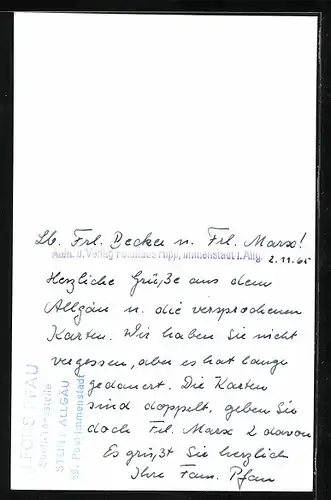 Lb. Frl. Becker u. Frl. Marx!
Aufn. u. Verlag Fotohaus Hipp, Immenstadt i. Allg.
2.11.65
Herzliche Grüße aus dem
Allgäu u. die versprochenen
Karten. Wir haben Sie nicht
vergessen, aber es hat lange
gedauert. Die Karten
sind doppelt, geben Sie
doch Frl. Marx 2 davon
Es grüßt Sie herzlich
Ihre Fam. Pfau
PFAU
ALLGÄU
Post Immenstadt